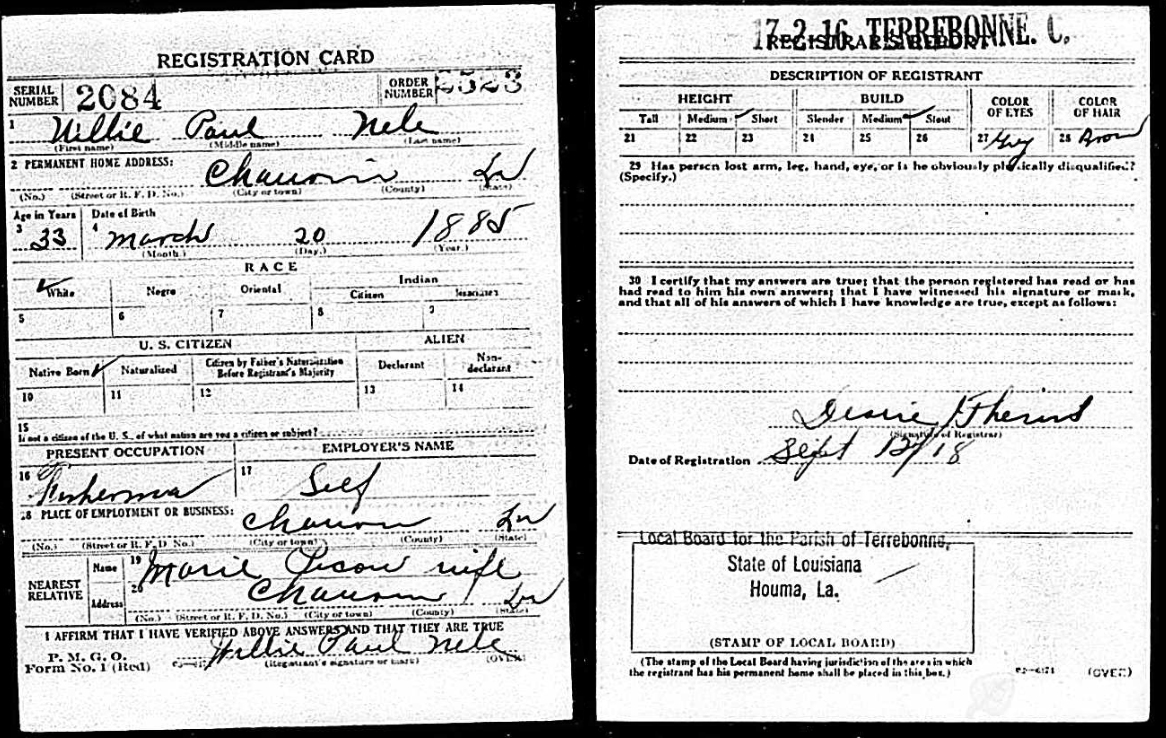 REGISTRATION CARD
SERIAL NUMBER 2084 ORDER NUMBER 2523
1 Willie Paul Nele
(First name) (Middle name) (Last name)
2 PERMANENT HOME ADDRESS:
Chauvin La
(No.) (Street or R. F. D. No.) (City or town) (County) (State)
Age in Years Date of Birth
3 33 4 March 20 1885
(Month.) (Day.) (Year.)
RACE
White Negro Oriental Indian
Citizen Noncitizen
5 6 7 8 9
U. S. CITIZEN ALIEN
Native Born Naturalized Citizen by Father's Naturalization Before Registrant's Majority Declarant Non-declarant
10 11 12 13 14
15
If not a citizen of the U. S., of what nation are you a citizen or subject?
PRESENT OCCUPATION EMPLOYER'S NAME
16 Fisherman 17 Self
18 PLACE OF EMPLOYMENT OR BUSINESS:
Chauvin La
(No.) (Street or R. F. D. No.) (City or town) (County) (State)
NEAREST RELATIVE Name 19 Marie wife
Address 20 Chauvin La
(No.) (Street or R. F. D. No.) (City or town) (County) (State)
I AFFIRM THAT I HAVE VERIFIED ABOVE ANSWERS AND THAT THEY ARE TRUE
P. M. G. O.
Form No. 1 (Red) Willie Paul Nele
(Registrant's signature or mark) (OVER)
17-2-16 TERREBONNE. C.
REGISTRAR'S REPORT
DESCRIPTION OF REGISTRANT
HEIGHT BUILD COLOR OF EYES COLOR OF HAIR
Tall Medium Short Slender Medium Stout
21 22 23 24 25 26 27 Grey 28 Brown
29 Has person lost arm, leg, hand, eye, or is he obviously physically disqualified?
(Specify.)
30 I certify that my answers are true; that the person registered has read or has
had read to him his own answers; that I have witnessed his signature or mark,
and that all of his answers of which I have knowledge are true, except as follows:
(Signature of Registrar)
Date of Registration Sept 12/18
Local Board for the Parish of Terrebonne,
State of Louisiana
Houma, La.
(STAMP OF LOCAL BOARD)
(The stamp of the Local Board having jurisdiction of the area in which
the registrant has his permanent home shall be placed in this box.)
(OVER)